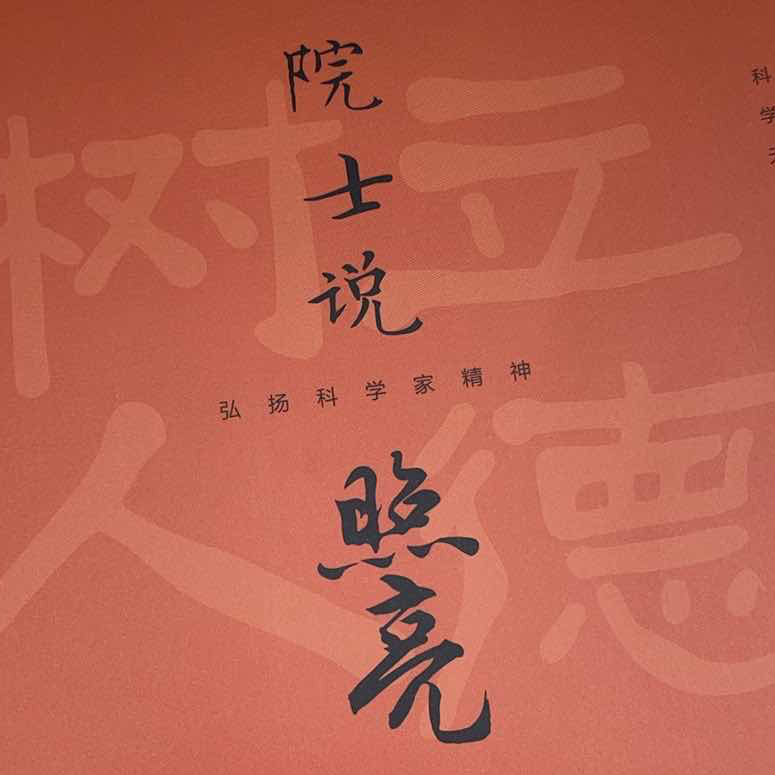 院士说
弘扬科学家精神
照亮
立德
树人
科学